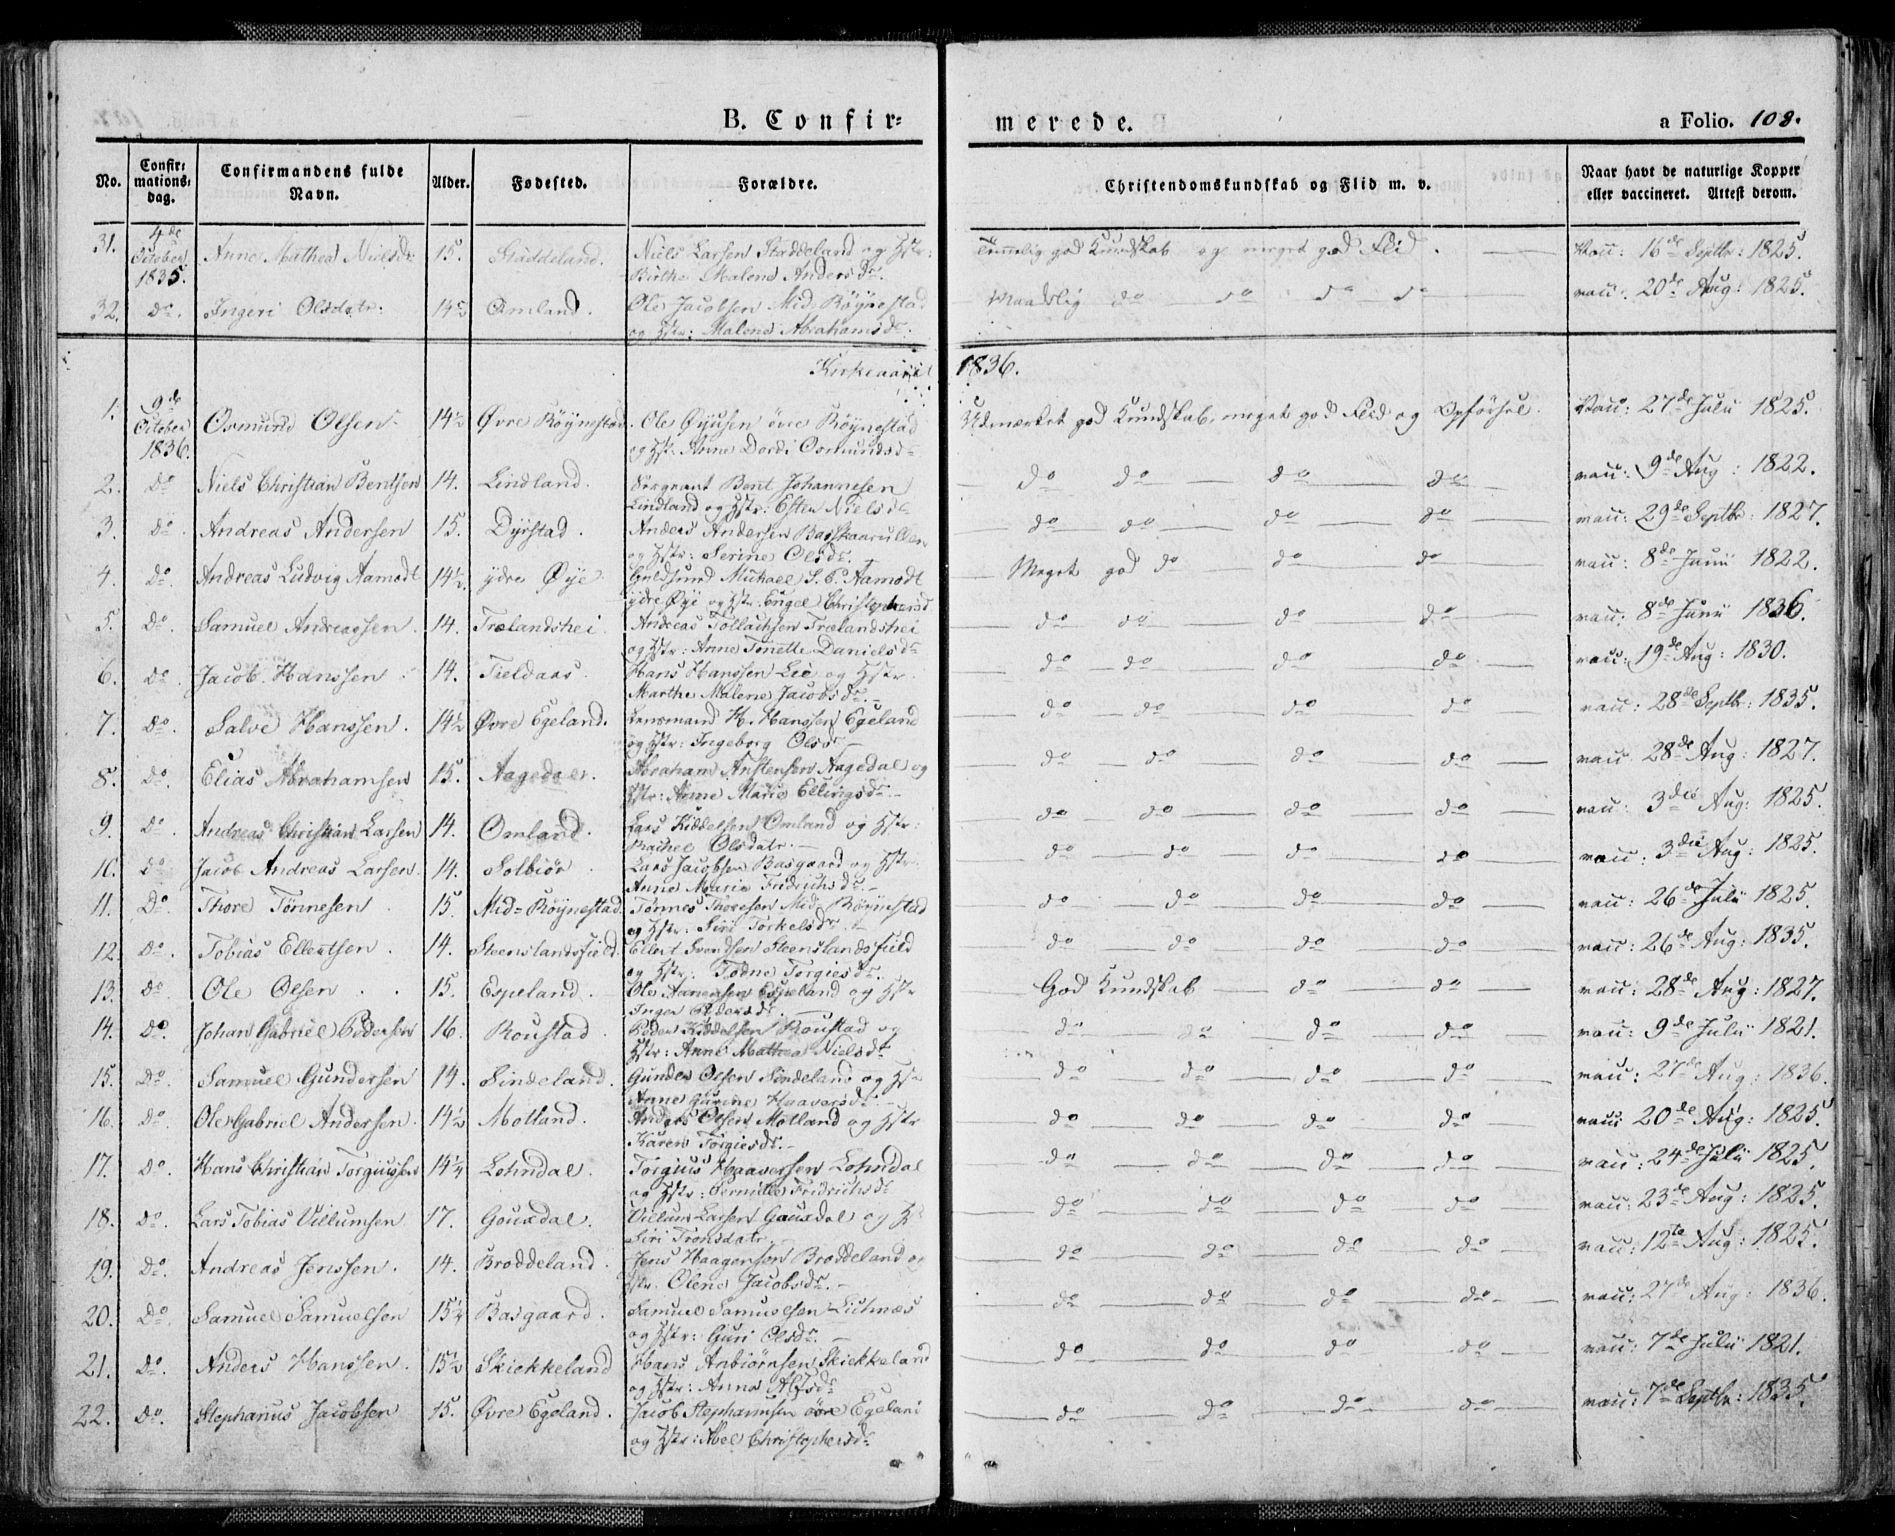 B. Confir- merede. a Folio. 108.
No. Confirmations-dag. Confirmandens fulde Navn. Alder. Fødested. Forældre. Christendomskundskab og Flid m. v. Naar havt de naturlige Kopper eller vaccineret. Attest derom.
31. 4de October 1835. Anne Mathea Nielsdr. 15. Staddeland. Niels Larsen Staddeland og Hstr: Birthe Malene Andersdr. Temmelig god Kundskab og meget god Flid. Vac: 16de Septbr: 1825.
32. do. Ingeri Olsdatr. Omland. Ole Jacobsen Mid Röynestad og Hstr: Malene Abrahamsdr. Maadelig do do do do vac: 20de Aug: 1825.
Kirkeaaret 1836.
1. 9de October 1836. Osmund Olsen 14½ Øvre Röynestad. Ole Øyusen övre Röynestad og Hstr: Anne Dordi Osmundsdr Udmærket god Kundskab, meget god Flid og Opförsel. Vac: 27de Julii 1825.
2. do Niels Christian Bentsen 14. Lindland. Sergeant Bent Johannesen Lindland og Hstr: Ester Nielsdr do do do do vac: 9de Aug: 1822.
3. do. Andreas Andersen 15. Dyrstad. Anders Andersen og Hstr: Serine Olsdr. do do do do vac: 29de Septbr: 1827.
4. do. Andreas Ludvig Aamodt 14½ ydre Øye. Michael S. P. Aamodt ydre Øye og Hstr: Engel Christophersd Meget god do do do vac: 8de Junii 1822.
5. do. Samuel Andreassen. 14. Trælandshei. Andreas Tollachsen Trælandshei og Hstr: Anne Tonette Danielsdr do do do do vac: 8de Junii 1836.
6. do. Jacob Hanssen 14. Tieldaas. Hans Hanssen Lie og Hstr. Marthe Malene Jacobsdr. do do do do vac: 19de Aug: 1830.
7. do. Salve Hanssen. 14½ Øvre Egeland. Lensmand H. Hanssen Egeland og Hstr: Ingeborg Olsdr do do do do vac: 28de Septbr: 1835.
8. do. Elias Abrahamsen 15. Aagedal. Abraham Anstensen Aagedal og Hstr: Anne Marie Ellingsdr. do do do do vac: 28de Aug: 1827.
9. do. Andreas Christian Larsen 14. Omland. Lars Kiddelsen Omland og Hstr: Rachel Olsdatr. do do do do vac: 3die Aug: 1825.
10. do Jacob Andreas Larsen. 14. Solbiör. Lars Jacobsen Basgaard og Hstr. Anne Marie Fredrichsdr. do do do do vac: 3die Aug: 1825.
11. do. Thore Tönnesen. 15. Mid-Röynestad. Tönnes Thoresen Mid-Röynestad og Hstr: Siri Torkelsdr. do do do do vac: 26de Julii 1825.
12. do. Tobias Ellertsen. 14. Steenslandsfield. Ellert Svendsen Steenslandsfield og Hstr: Todne Torgiesdr. do do do do vac: 26de Aug: 1835.
13. do. Ole Olsen. 15. Espeland. Ole Aanensen Espeland og Hstr Inger Pedersdr. God Kundskab do do vac: 28de Aug: 1827.
14. do. Johan Gabriel Pedersen 16. Roustad. Peder Kiddelsen Roustad og Hstr: Anne Mathea Nielsdr do do do do vac: 9de Julii 1821.
15. do. Samuel Gundersen 14. Sindeland. Gunder Olsen Sindeland og Hstr Anne Gurine Haaversdr. do do do do vac: 27de Aug: 1836.
16. do. Ole Gabriel Andersen. 14½ Motland. Anders Olsen Motland og Hstr Karen Torgiesdr. do do do do vac: 20de Aug: 1825.
17. do. Hans Christian Torgiussen 14¼ Lohndal. Torgius Haaversen Lohndal og Hstr: Pernille Fridrichsdr do do do do vac: 24de Julii 1825.
18. do. Lars Tobias Villumsen 17. Gousdal. Villum Larsen Gousdal og Siri Tronsdatr. do do do do vac: 23de Aug: 1825.
19. do. Andreas Jenssen. 14. Broddeland. Jens Haagensen Broddeland og Hstr: Olene Jacobsdr. do do do do vac: 12te Aug: 1825.
20. do. Samuel Samuelsen 15¼ Basgaard. Samuel Samuelsen og Hstr: Guri Olsdr. do do do do vac: 27de Aug: 1836.
21. do. Anders Hanssen. 15½ Skiekkeland Hans Anbiörnsen Skiekkeland og Hstr: Anna Alfsdr do do do do vac: 7de Julii 1821.
22. do. Stephanus Jacobsen 15. Øvre Egeland. Jacob Stephannsen övre Egeland og Hstr: Abel Christophersdr do do do do vac: 7de Septbr: 1835.